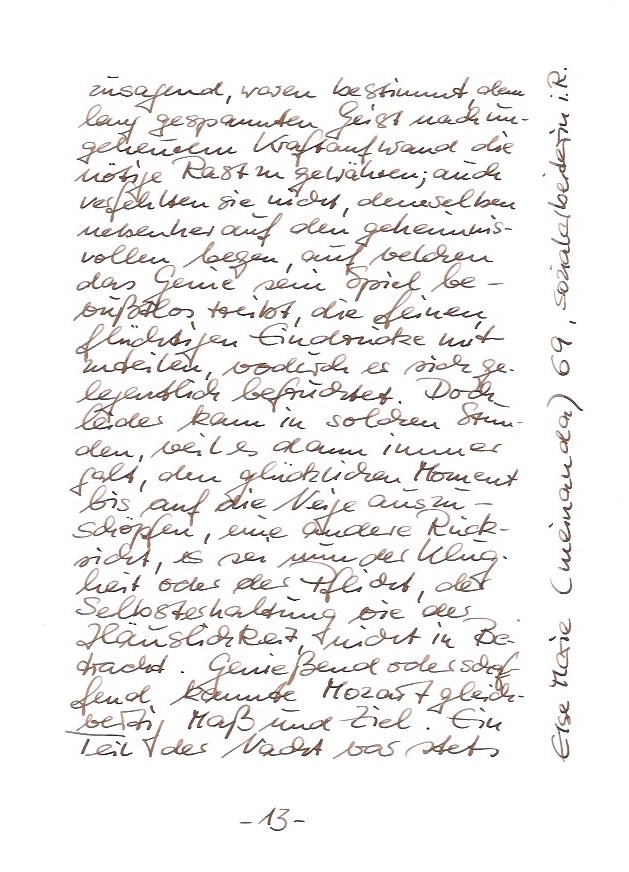 zusagend, waren bestimmt, dem
lang gespannten Geist nach un-
geheurem Kraftaufwand die
nötige Rast zu gewähren; auch
verfehlten sie nicht, demselben
nebenher auf den geheimnis-
vollen Wegen, auf welchen
das Genie sein Spiel be-
wußtlos treibt, die feinen
flüchtigen Eindrücke mit-
zuteilen, wodurch es sich ge-
legentlich befruchtet. Doch
leider kam in solchen Stun-
den, weil es dann immer
galt, den glücklichen Moment
bis auf die Neige auszu-
schöpfen, eine andere Rück-
sicht, es sei nun der Klug-
heit oder der Pflicht, der
Selbsterhaltung wie der
Häuslichkeit, nicht in Be-
tracht. Genießend oder schaf-
fend, kannte Mozart gleich-
wenig Maß und Ziel. Ein
Teil der Nacht war stets
-13-
Else Marie 69, Sozialarbeiterin i.R.